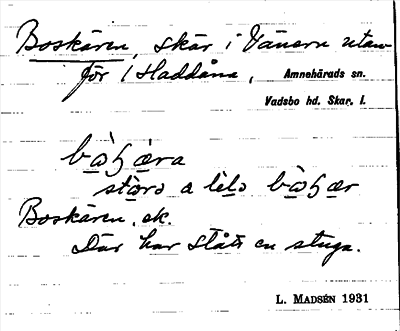 Boskären, skär i Vänern utan-
för Haddåna, Amnehärads sn.
Vadsbo hd. Skar. l.
stora a
Boskären, sk.
Där har stått en stuga.
L. MADSÉN 1931